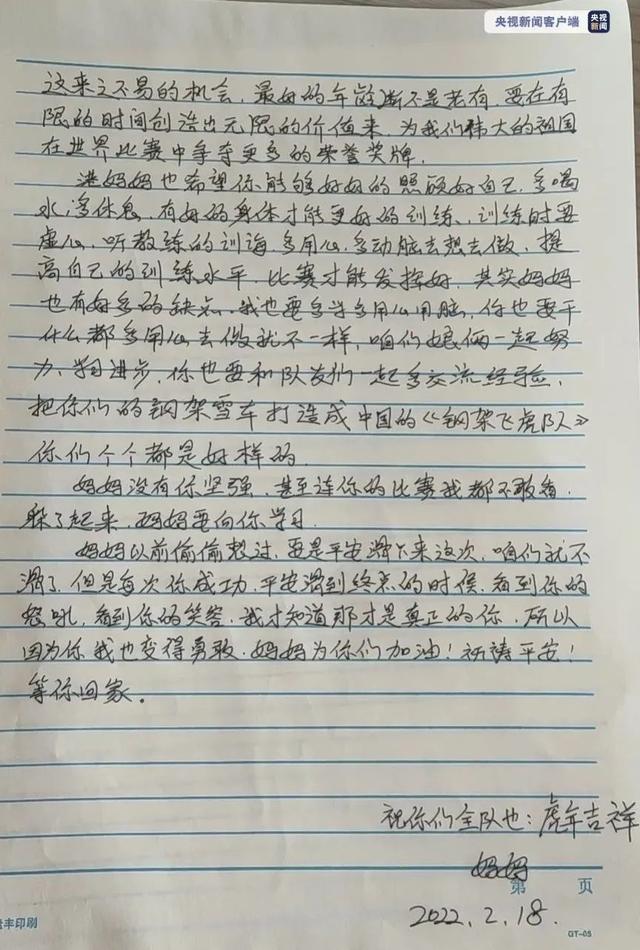 央视新闻客户端
央视
新闻
这来之不易的机会，最好的年龄断不是老有，要在有
限的时间创造出无限的价值来，为我们伟大的祖国
在世界比赛中争夺更多的荣誉奖牌。
妈妈也希望你能够好好的照顾好自己，多喝
水，多休息，有好的身体才能更好的训练，训练时要
虚心，听教练的训诲，多用心，多动脑去想去做，提
高自己的训练水平，比赛才能发挥好，其实妈妈
也有好多的缺点，我也要多学多用心用脑，你也要干
什么都多用心去做就不一样，咱们娘俩一起努
力，学习进步，你也要和队友们一起多交流经验，
把你们的钢架雪车打造成中国的《钢架飞虎队》
你们个个都是好样的。
妈妈没有你坚强，甚至连你的比赛我都不敢看，
躲了起来，妈妈要向你学习。
妈妈以前偷偷想过，要是平安滑下来这次，咱们就不
滑了，但是每次你成功，平安滑到终点的时候，看到你的
怒吼，看到你的笑容，我才知道那才是真正的你，所以
因为你，我也变得勇敢，妈妈为你们加油！祈祷平安！
等你回家。
祝你们全队也：虎年吉祥
妈妈
第 页
2022.2.18.
丰印刷
GT-05